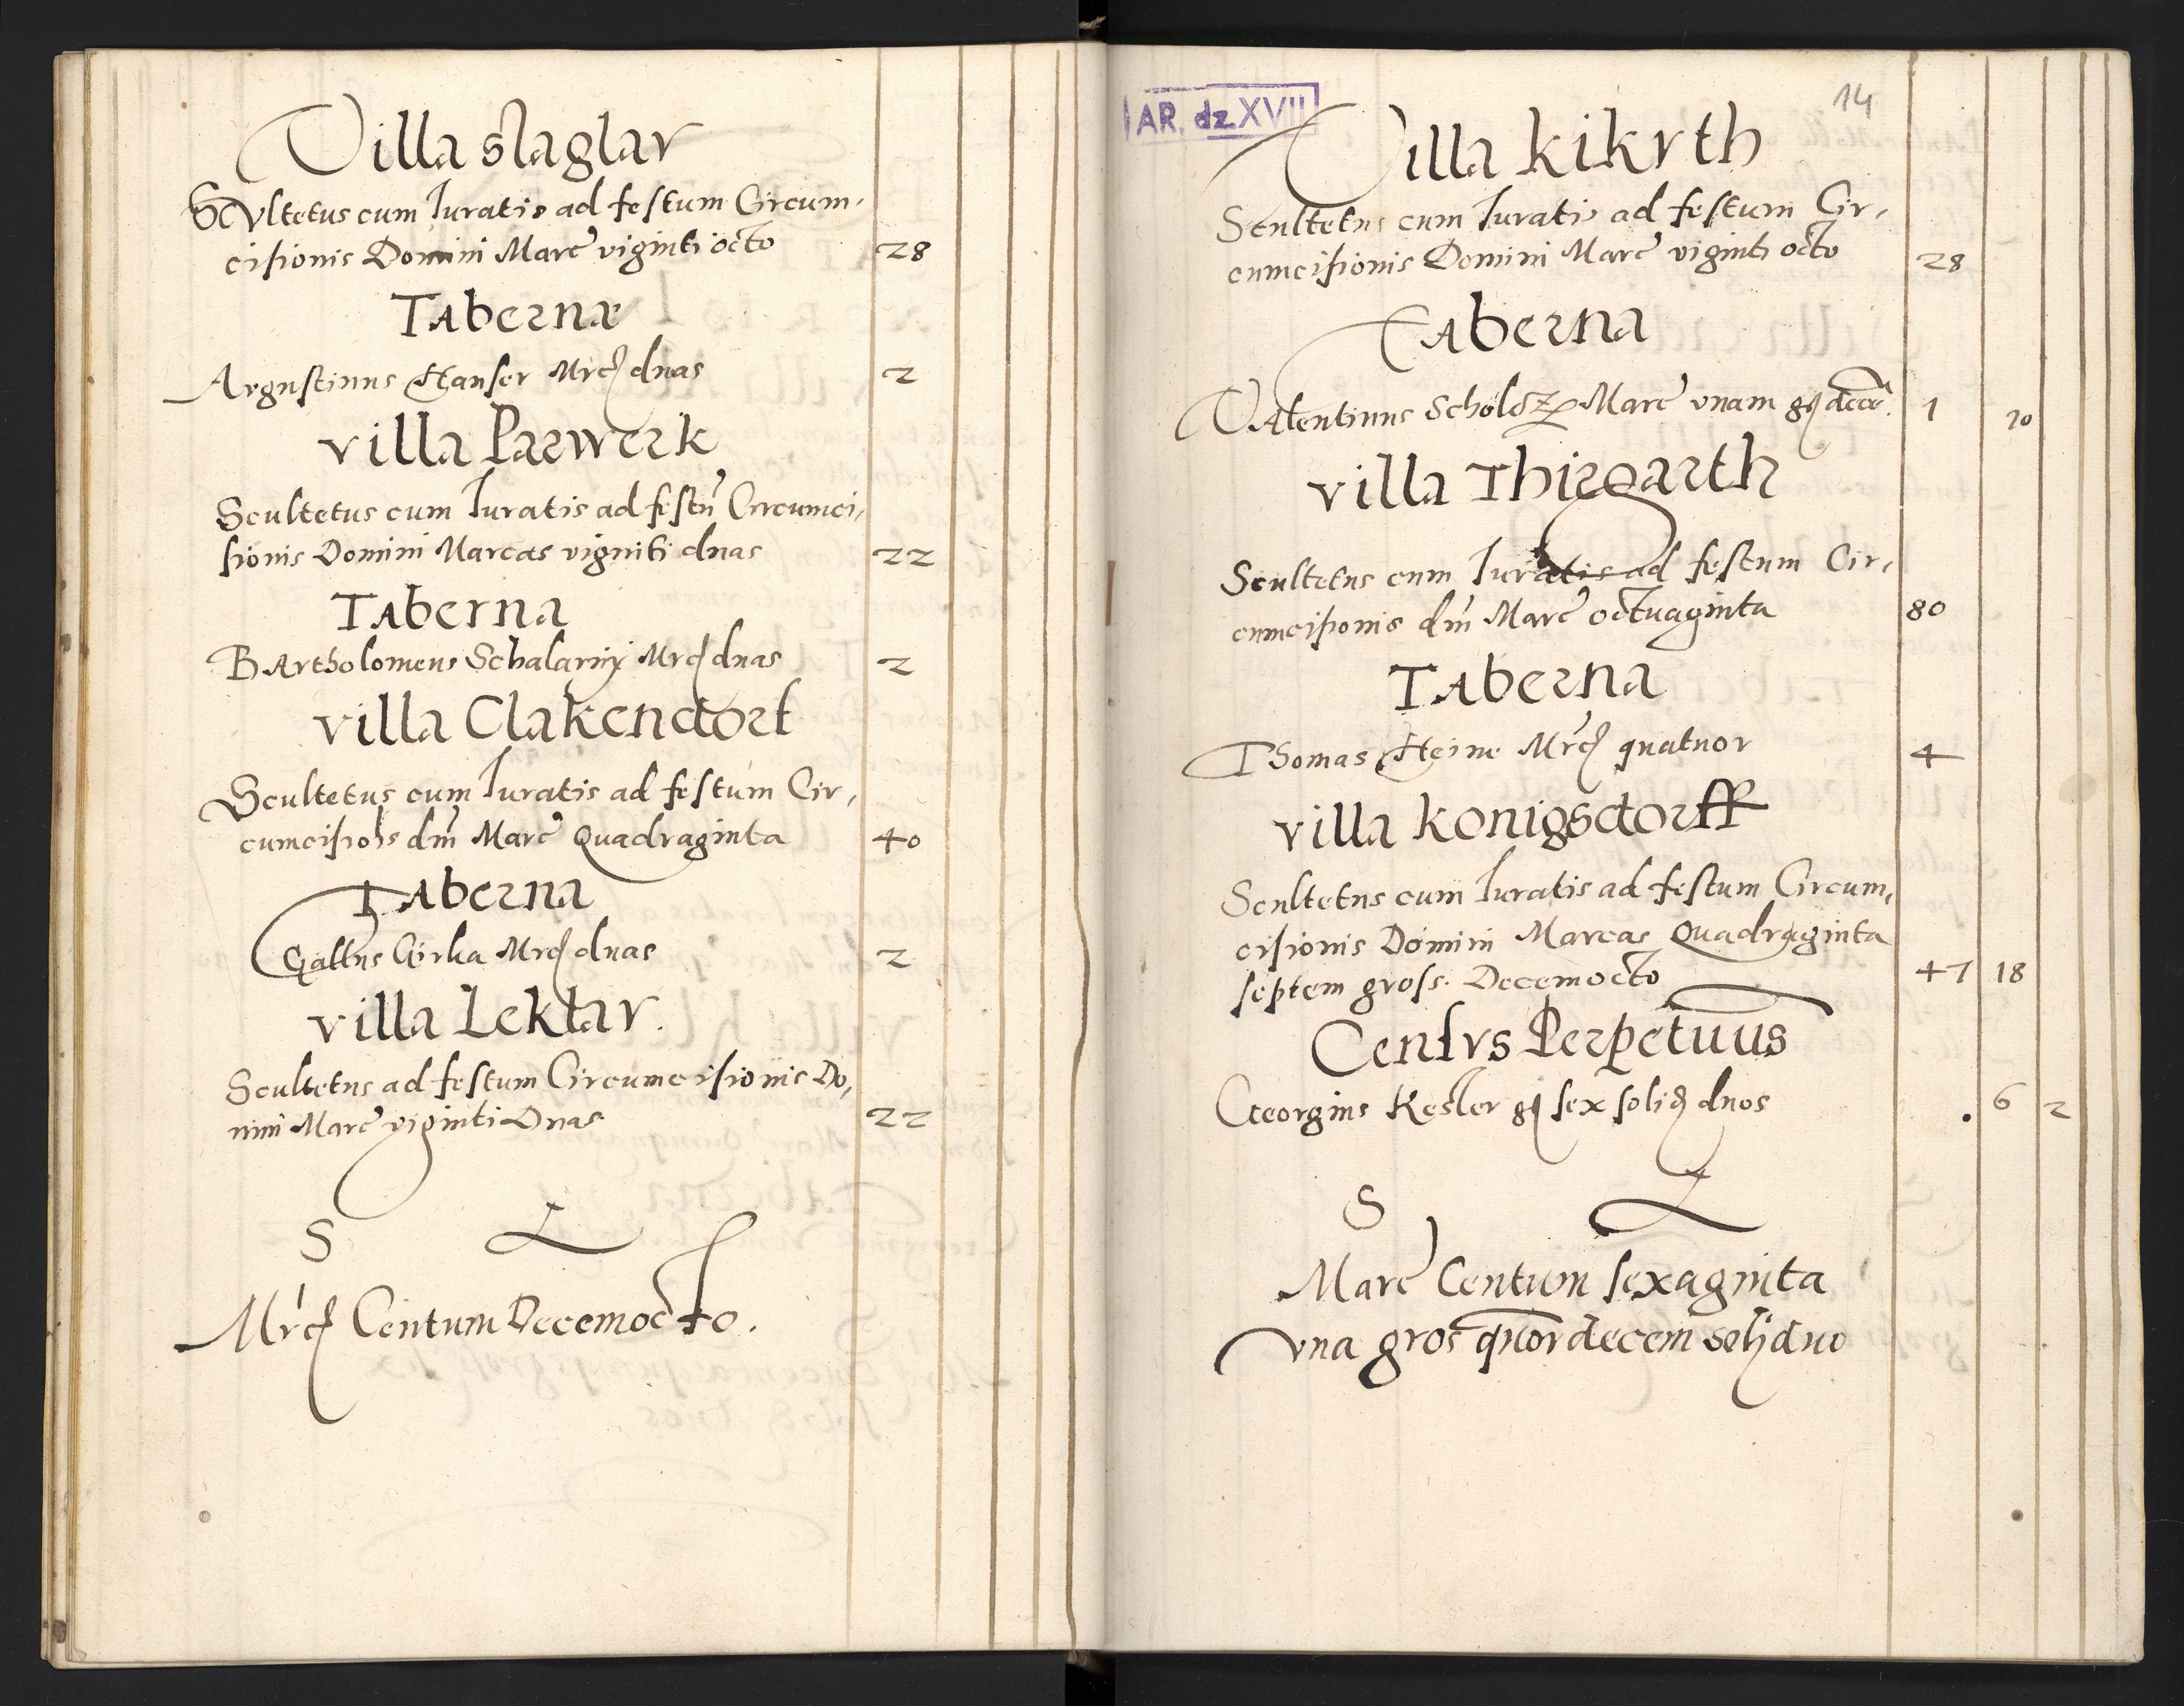 Villa slaglar
SCVltetus cum Iuratis ad festum Circum,
cisionis Domini Marc viginti octo 28
TAbernæ
Avgustinus Hanser Mrcs duas 2
villa Parwerk
Scultetus cum Iuratis ad festu Circumci,
sionis Domini Marcas viginti duas 22
TAberna
BArtholomeus Mrcs duas 2
villa Clakendorf
Scultetus cum Iuratis ad festum Cir,
cumcisiois dni Marc Quadraginta 40
TAberna
Gallus Girha Mrcs duas 2
villa Leklar.
Scultetus ad festum Circumcisionis Do,
mini Marc viginti Duas 22
S L
Mrcs Centum Decemocto.
AR. dz. XVII
14
Villa kikvth
Scultetus cum Iuratis ad festum Cir,
cumcisionis Domini Marc viginti octo 28
TAberna
VAlentinus Scholtz Marc vnam gs decē. 1 10
villa Thirgarth
Scultetus cum Iuratis ad festum Cir,
cumcisionis dni Marc octuaginta 80
TAberna
Thomas Heine Mrcs quatuor 4
villa konigsdorff
Scultetus cum Iuratis ad festum Circum,
cisionis Domini Marcas Quadraginta
septem gross. Decemocto 47 18
Censvs Perpetuus
Georgius Kesler gs sex solid duos . 6 2
S L
Marc Centum sexaginta
vna gros quordecem soli duo